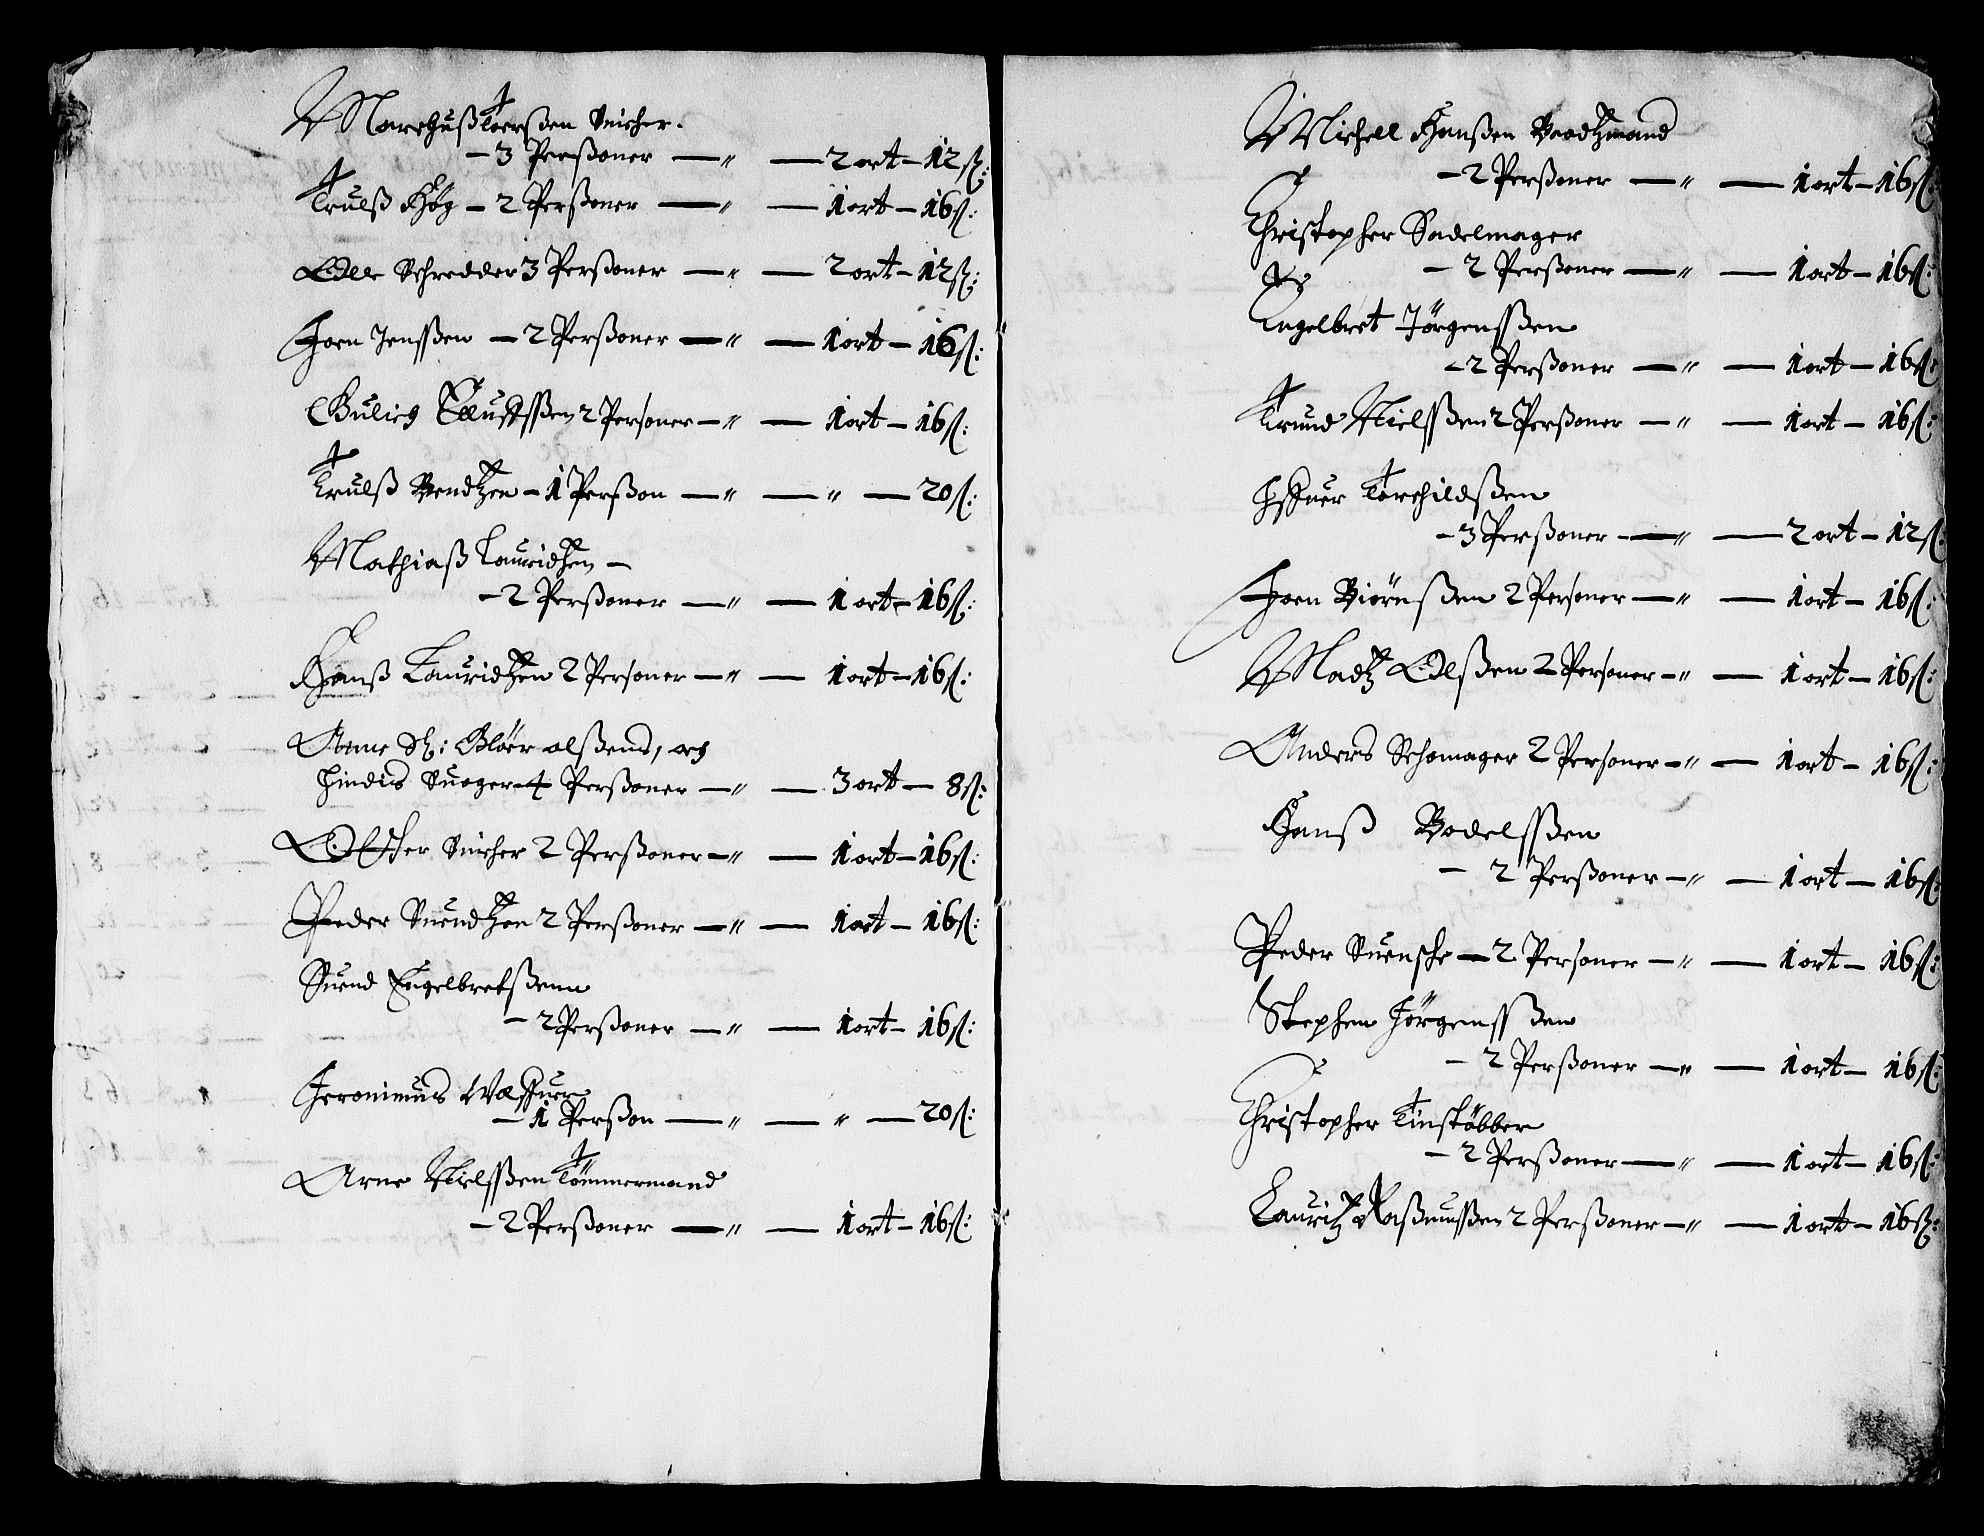 Marchuß Toerßen Snicher.
- 3 Perßoner — " — 2 ort - 12 ß:
Trulß Høg - 2 Perßoner — " — 1 ort - 16 ß:
Olle Schredder 3 Perßoner — " — 2 ort - 12 ß:
Joen Jenssßen - 2 Perßoner — " — 1 ort - 16 ß:
Gulich 2 Personer - " — 1 ort - 16 ß:
Trulß Bendtzen - 1 Perßon — " — " — 20 ß:
Mathiaß Lauridtzen -
- 2 Perßoner — " — 1 ort - 16 ß:
Hanß Lauridtzen 2 Personer - " — 1 ort - 16 ß:
Anne Sl: olßens, och
Suoger - 4 Perßoner — " — 3 ort - 8 ß:
Snicher 2 Perßoner - " — 1 ort - 16 ß:
Peder Suendtzen 2 Perßoner - " — 1 ort - 16 ß:
Suend Engelbretßenn
- 2 Perßoner — " — 1 ort - 16 ß:
Jeronimus
- 1 Perßon — " — " — 20 ß:
Arne Nielssßen Tömmermand
- 2 Perßoner — " — 1 ort - 16 ß:
Michell Hanßen Baadtzmand
- 2 Perßoner — " — 1 ort - 16 ß:
Christopher Sadelmager
- 2 Perßoner — " — 1 ort - 16 ß:
Engelbret Jörgenssßen
- 2 Perßoner — " — 1 ort - 16 ß:
Trund Nielssßen 2 Perßoner - " — 1 ort - 16 ß:
Torchildßen
- 3 Perßoner — " — 2 ort - 12 ß:
Joen Biörnßen 2 Personer — " — 1 ort - 16 ß:
Madtz Olßen 2 Personer - " — 1 ort - 16 ß:
Anders Schomager 2 Personer - " — 1 ort - 16 ß:
Hanß Bodelssßen
- 2 Perßoner - " — 1 ort - 16 ß:
Peder Suensche - 2 Personer - " — 1 ort - 16 ß:
Stephen Jörgenssßen
- 2 Perßoner — " — 1 ort - 16 ß:
Christopher Tinstöbber
- 2 Perßoner — " — 1 ort - 16 ß:
Lauritz Raßmussßen 2 Perßoner - " — 1 ort - 16 ß: